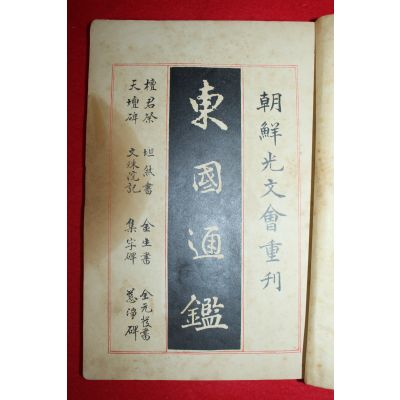 朝鮮光文會重刊
東國通鑑
檀君祭 坦然書 金生書 全元發書
天壇碑 文殊院記 集字碑 慈淨碑